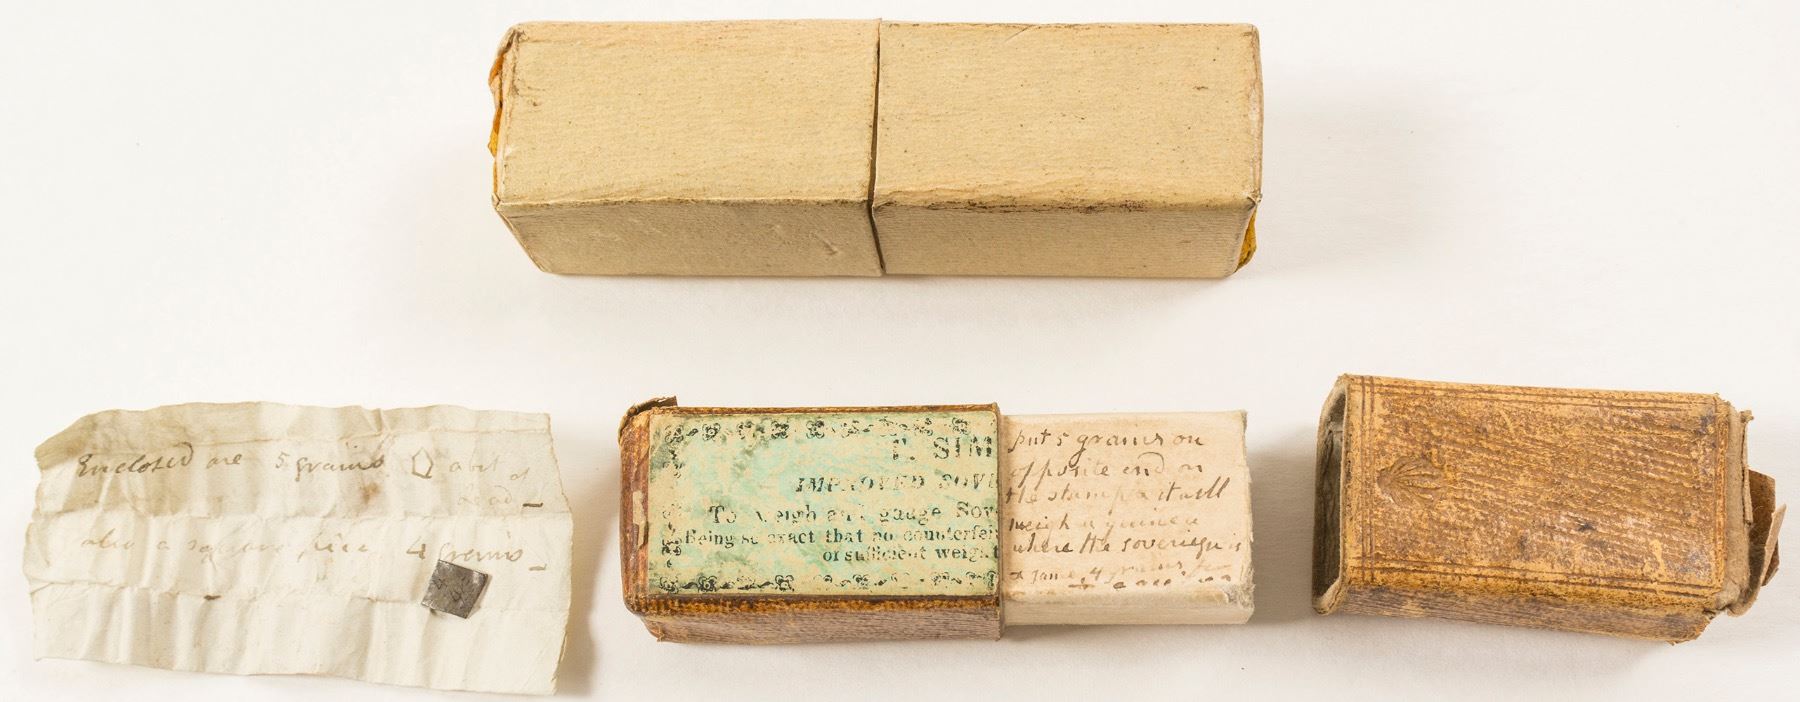 Enclosed are 5 grains a bit of
lead
also a square piece 4 grains
T. SIM
IMPROVED SOVE
To weigh and gauge Sov
Being so exact that no counterfei
or sufficient weight
put 5 grains on
opposite end on
the stamp & it will
weigh a guinea
where the sovereign is
& same 4 grains